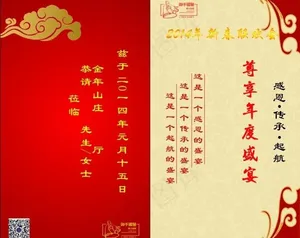 兹于二〇一四年元月十五日
金年山庄 厅
恭请 先生/女士
莅临
2014年新春联欢会
感恩·传承·起航
尊享年度盛宴
这是一个感恩的盛宴
这是一个传承的盛宴
这是一个起航的盛宴